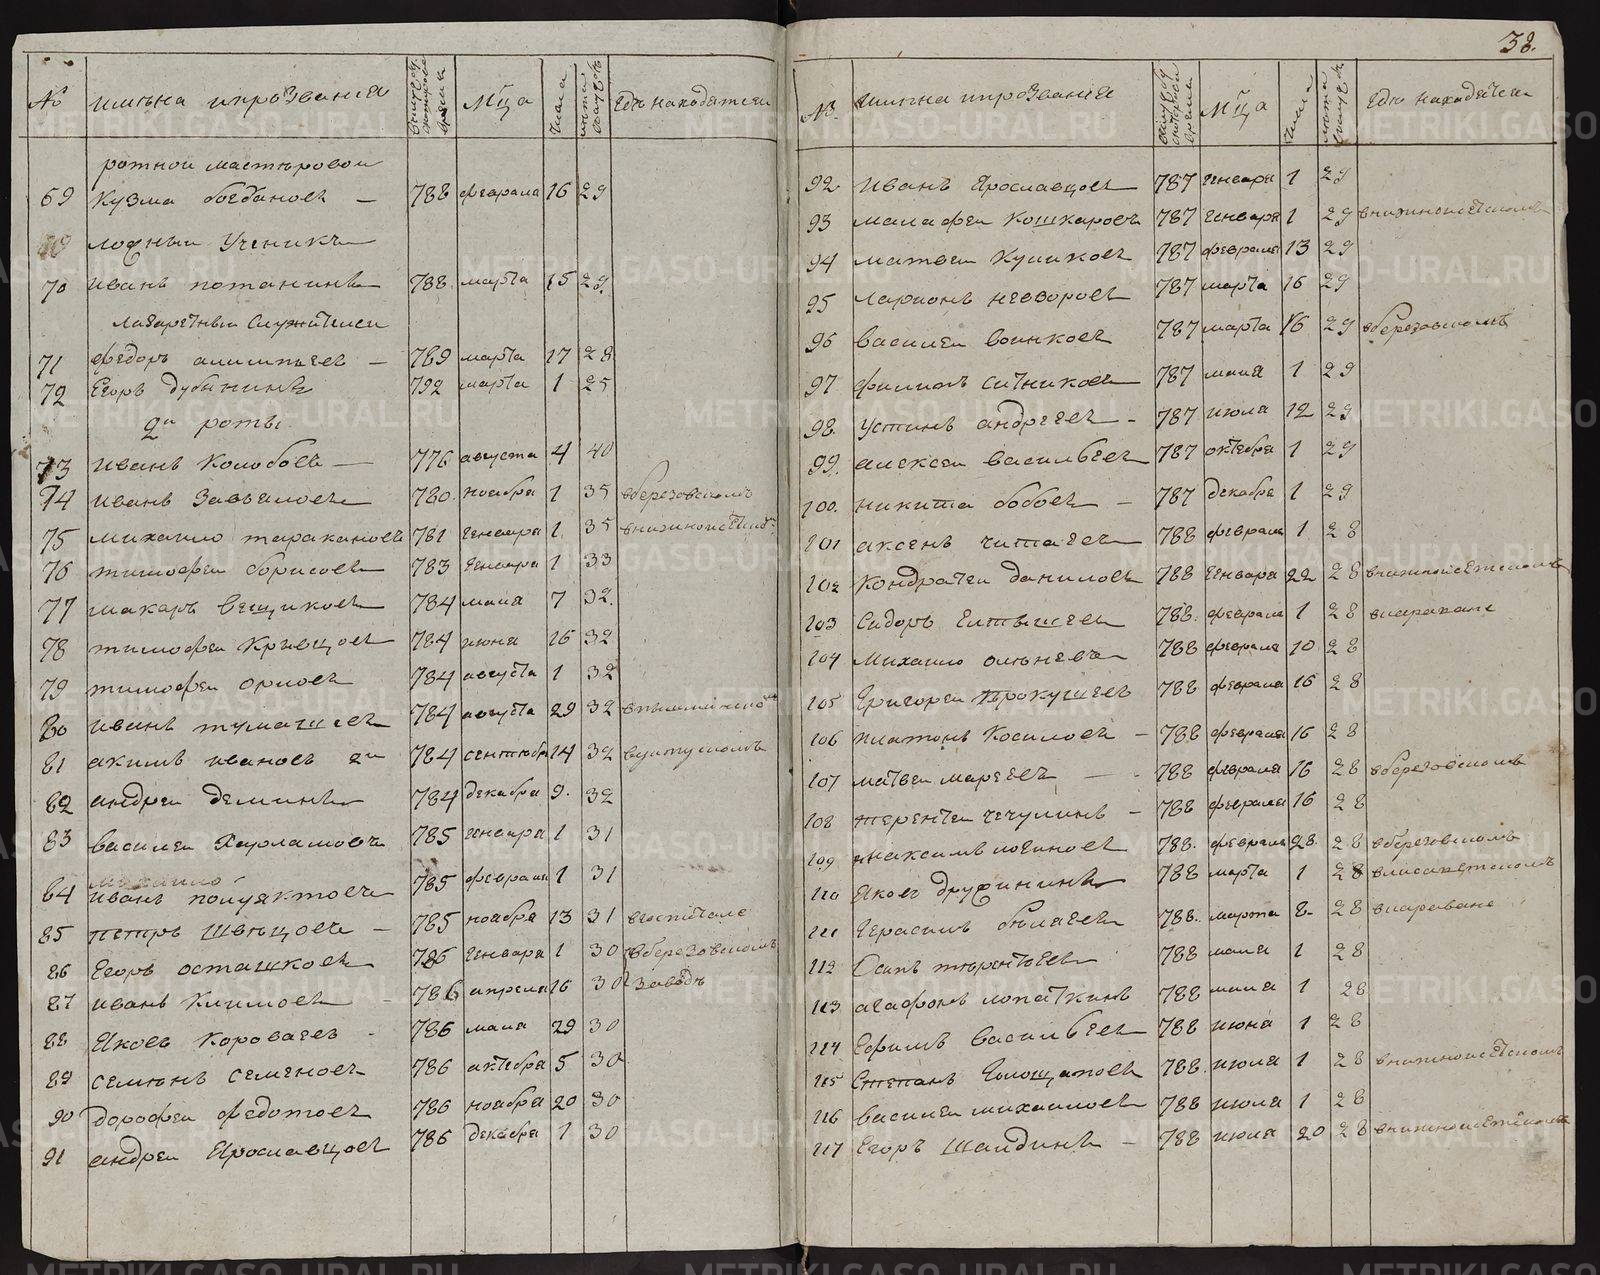 38.
№ имѣна ипрозвания Мц̃а числа гдѣ находятси
ротной мастеровои
69 Кузма богдановъ — 788 февраля 16 29
лозныи Ученикъ
70 иванъ потанинъ 788. марта 15 29.
лазаретныи служители
71 федоръ — 789 марта 17 28
72 Егоръ дубынинъ 792 марта 1 25
2й роты.
73 иванъ Колобовъ — 776 августа 4 40
74 иванъ Завьяловъ 780. ноября 1 35 вберезовскомъ
75 михаило таракановъ 781 генваря 1 35
76 тимофеи борисовъ 783 генваря 1 33
77 макаръ вещиковъ 784 маия 7 32.
78 тимофеи Кривцовъ 784 июня 16 32
79 тимофеи орловъ 784 августа 1 32
80 иванъ тумашевъ 784 августа 29 32
81 акимъ ивановъ 2и 784 сентября 14 32
82 андреи деминъ 784 декабря 9. 32
83 василеи Харламовъ 785 генваря 1 31
михаило
84 иванъ полуяктовъ 785 февраля 1 31
85 петръ Швецовъ — 785 ноября 13 31 вгоспитале
86 Егоръ осташковъ 786 генваря 1 30 вберезовскомъ
87 иванъ Климовъ 786 апреля 16 30 Заводѣ
88 Яковъ Короваевъ 786 маия 29 30
89 семенъ семеновъ 786 актября 5 30
90 дорофеи федотовъ 786 ноября 20 30
91 андреи Ярославцовъ 786 декабря 1 30
№. имѣна ипрозвания Мц̃а числа гдѣ находятси
92 иванъ Ярославцовъ 787 генваря 1 29
93 малафеи Кошкаровъ 787 генваря 1 29 внижноисетскомъ
94 матвеи Куликовъ 787 февраля 13 29
95 ларионъ невзоровъ 787 марта 16 29
96 василеи воинковъ 787 марта 16 29 вберезовскомъ
97 филипъ ситниковъ 787 маия 1 29
98. устинъ андреевъ — 787 июля 12 29
99. алексеи васильевъ 787 октября 1 29
100. никита бобовъ — 787 декабря 1 29
101 аксенъ читаевъ 788 февраля 1 28
102 Кондратеи даниловъ 788 Генваря 22 28 внижноисетскомъ
103 Сидоръ Елтышевъ 788. февраля 1 28
104 Михаило 788 февраля 10 28
105 Григореи Прокушевъ 788 февраля 16 28
106 платонъ Косиловъ — 788 февраля 16 28
107 матвеи маревъ — 788 февраля 16 28 вберезовскомъ
108 терентеи чечулинъ — 788 февраля 16 28
109 максимъ логиновъ 788. февраля 28. 28 вберезовскомъ
110 Яковъ дружининъ 788 марта 1 28
111 Герасимъ белаевъ 788. марта 8. 28
112 Осипъ терентьевъ 788 маия 1 28
113 агафонъ лопаткинъ 788 маия 1 28
114 Ефимъ васильевъ 788 июня 1 28
115 Степанъ Голощаповъ 788. июля 1 28 внижноисетскомъ
116 василеи михаиловъ 788 июля 1 28
117 Егоръ Шалдинъ — 788 июля 20 28 внижноисетскомъ
METRIKI.GASO-URAL.RU